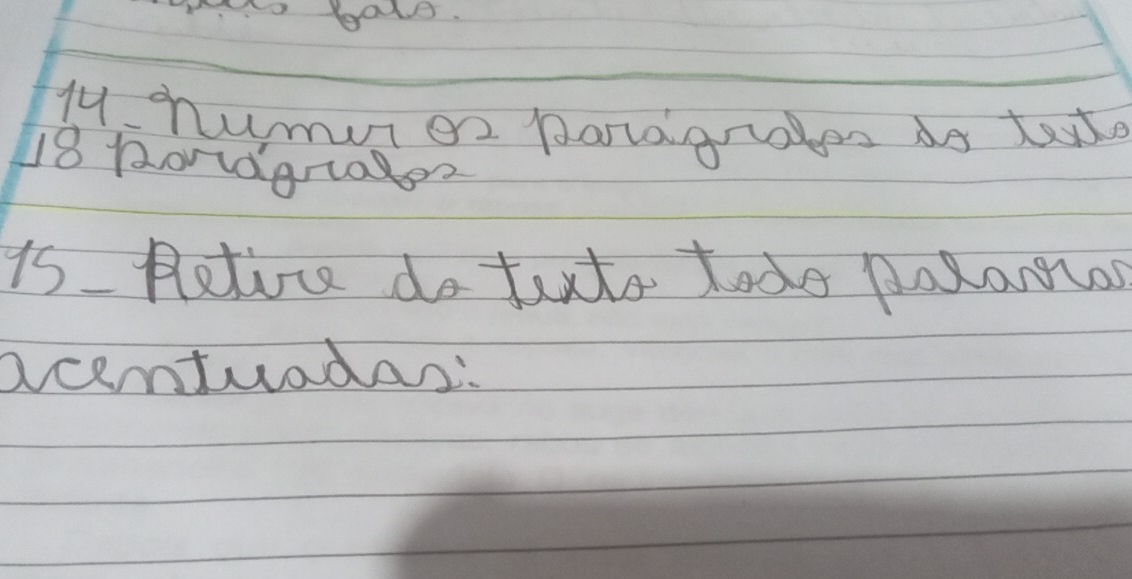 fato.
14- Numer os parágrafos do texto
18 parágrafos
15- Retire do texto todo palavras
acentuadas: